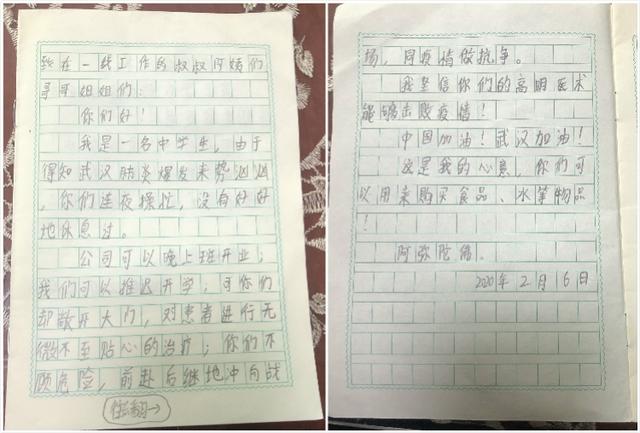 致在一线工作的叔叔阿姨们
哥哥姐姐们：
你们好！
我是一名中学生，由于
得知武汉肺炎爆发来势汹汹
，你们连夜操忙，没有好好
地休息过。
公司可以晚上班开业；
我们可以推迟开学；可你们
却敞开大门，对患者进行无
微不至贴心的治疗；你们不
顾危险，前赴后继地冲向战
往翻→
场，同疫情做抗争。
我坚信你们的高明医术
能够击败疫情！
中国加油！武汉加油！
这是我的心意，你们可
以用来购买食品、水等物品
！
阿弥陀佛。
2020年2月16日